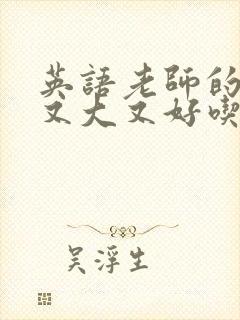 英語老師的
又大又好喫
吳浮生